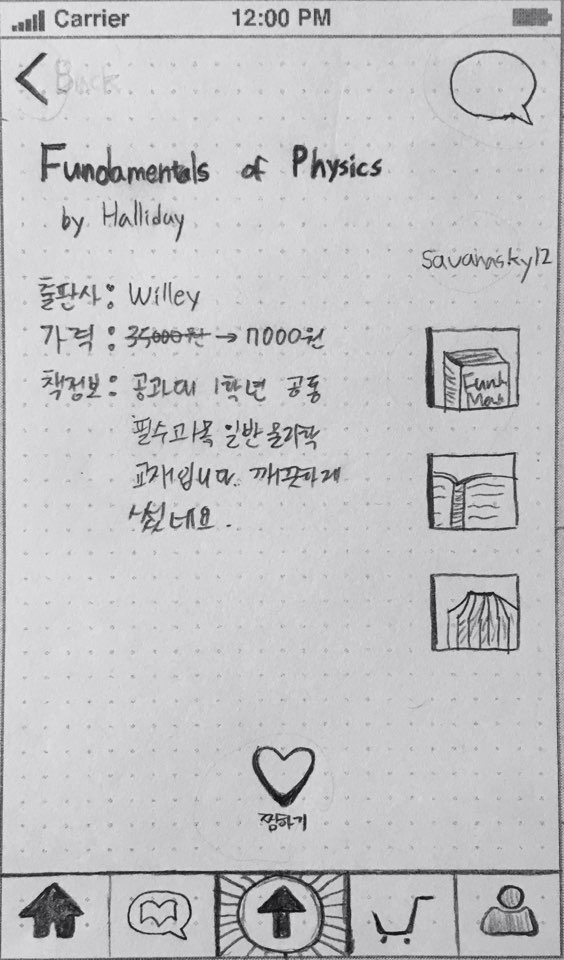 Carrier 12:00 PM
Back
Fundamentals of Physics
by Halliday
Savanasky12
출판사: Willey
가격: 35000원 → 17000원
책정보: 공과대 1학년 공통
필수과목 일반물리학
교재입니다. 깨끗하게
썼네요.
Fund
찜하기